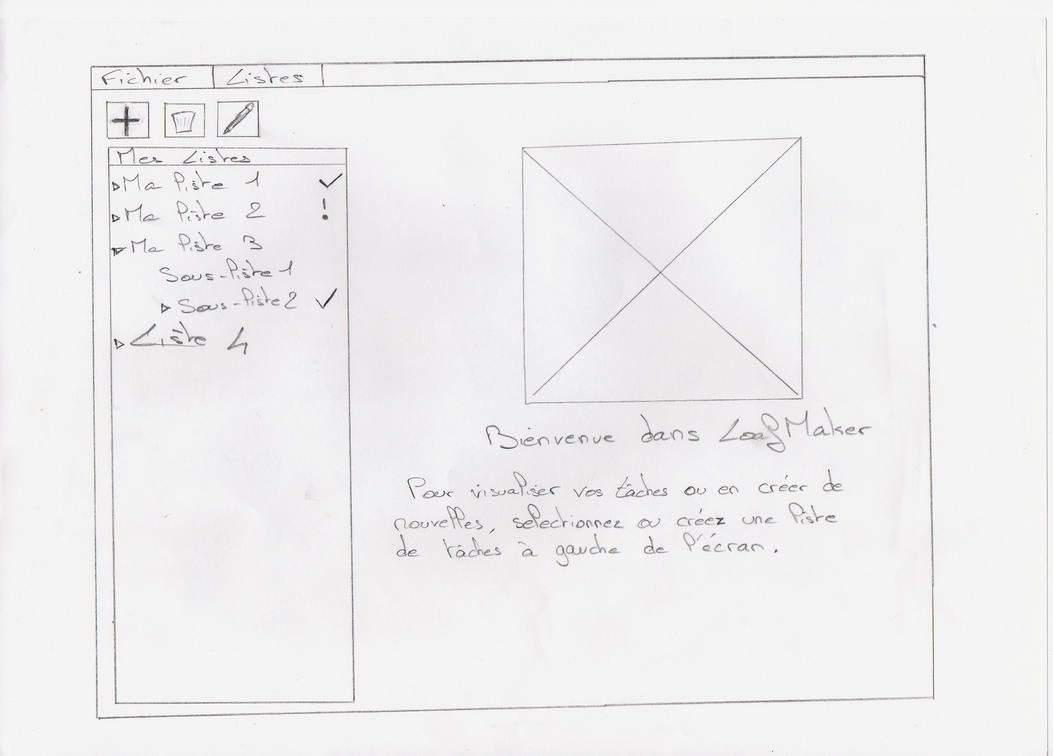 Fichier
Listes
Mes Listes
Ma liste 1
Ma liste 2 !
Ma liste 3
Sous-liste 1
Sous-liste 2
Liste 4
Bienvenue dans LoafMaker
Pour visualiser vos tâches ou en créer de
nouvelles, sélectionnez ou créez une liste
de tâches à gauche de l'écran.